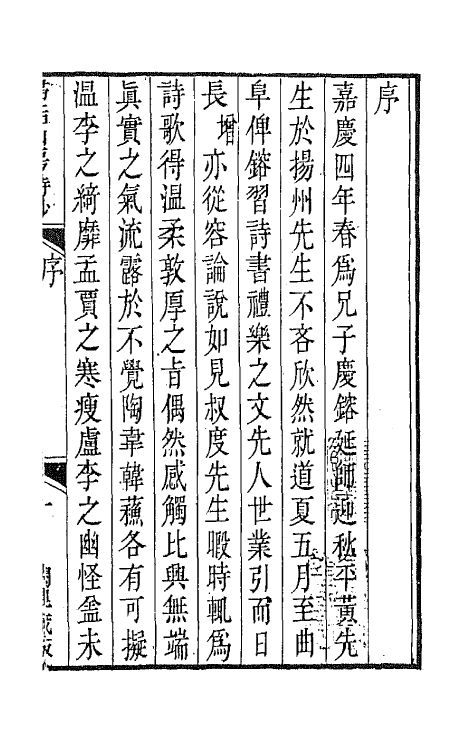 序
嘉慶四年春爲兄子慶鎔延師迎秋平黃先
生於揚州先生不吝欣然就道夏五月至曲
阜俾鎔習詩書禮樂之文先人世業引而日
長增亦從容論說如見叔度先生暇時輒爲
詩歌得溫柔敦厚之旨偶然感觸比興無端
眞實之氣流露於不覺陶韋韓蘓各有可擬
温李之綺靡孟賈之寒瘦盧李之幽怪盆未
序